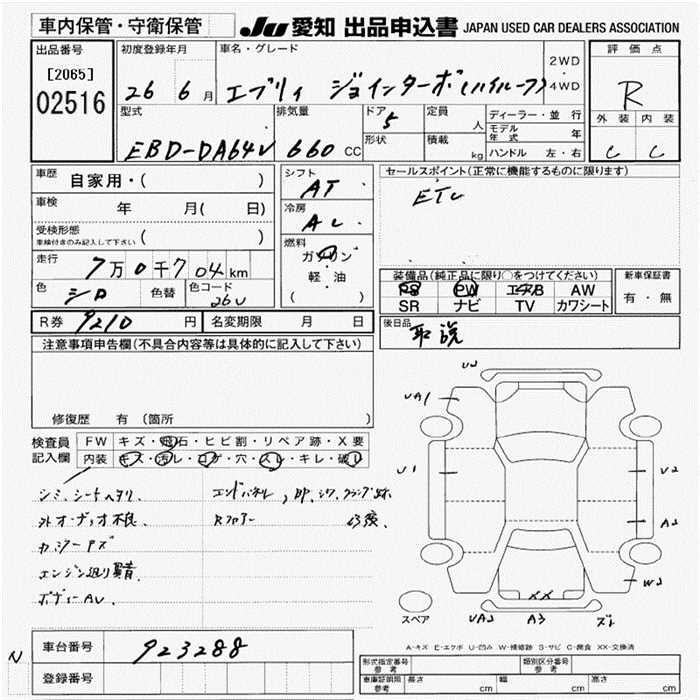 車内保管・守衛保管
JU 愛知 出品申込書 JAPAN USED CAR DEALERS ASSOCIATION
出品番号
[2065]
02516
初度登録年月
26 6 月
車名・グレード
エブリィ ジョインターボ(ハイルーフ)
2WD
4WD
評価点
R
外装 内装
C C
型式
EBD-DA64V
排気量
660 CC
ドア 5
形状
定員 人
積載 kg
ディーラー・並行
モデル年式 年
ハンドル 左・右
車歴 自家用・( )
車検 年 月( 日)
受検形態
車検付きのみ記入して下さい ( )
走行 7万0千704km
色 シロ 色替 色コード 26U
シフト AT
冷房 AC
燃料 ガソリン
軽・油
( )
セールスポイント(正常に機能するものに限ります)
ETC
装備品(純正品に限り○をつけてください)
PS PW エアB AW
SR ナビ TV カワシート
新車保証書
有・無
R券 9210 円 名変期限 月 日
後日品 取説
注意事項申告欄(不具合内容等は具体的に記入して下さい)
修復歴 有(箇所 )
検査員記入欄
FW キズ・飛石・ヒビ割・リペア跡・X要
内装 キズ・汚レ・コゲ・穴・スレ・キレ・破レ
シミ、シートヘタリ
外オーディオ不良、
エンジン廻り異音、
ボディーAU、
エンドパネル
UA1
U1
U2
A2
W2
UA2 A3
XX
スペア
A-キズ E-エクボ U-凹み W-補修跡 S-サビ C-腐食 XX-交換済
N
車台番号 923288
登録番号
形式指定番号 参考
類別区分番号 参考
車庫証明用 参考
長さ cm 幅 cm 高さ cm